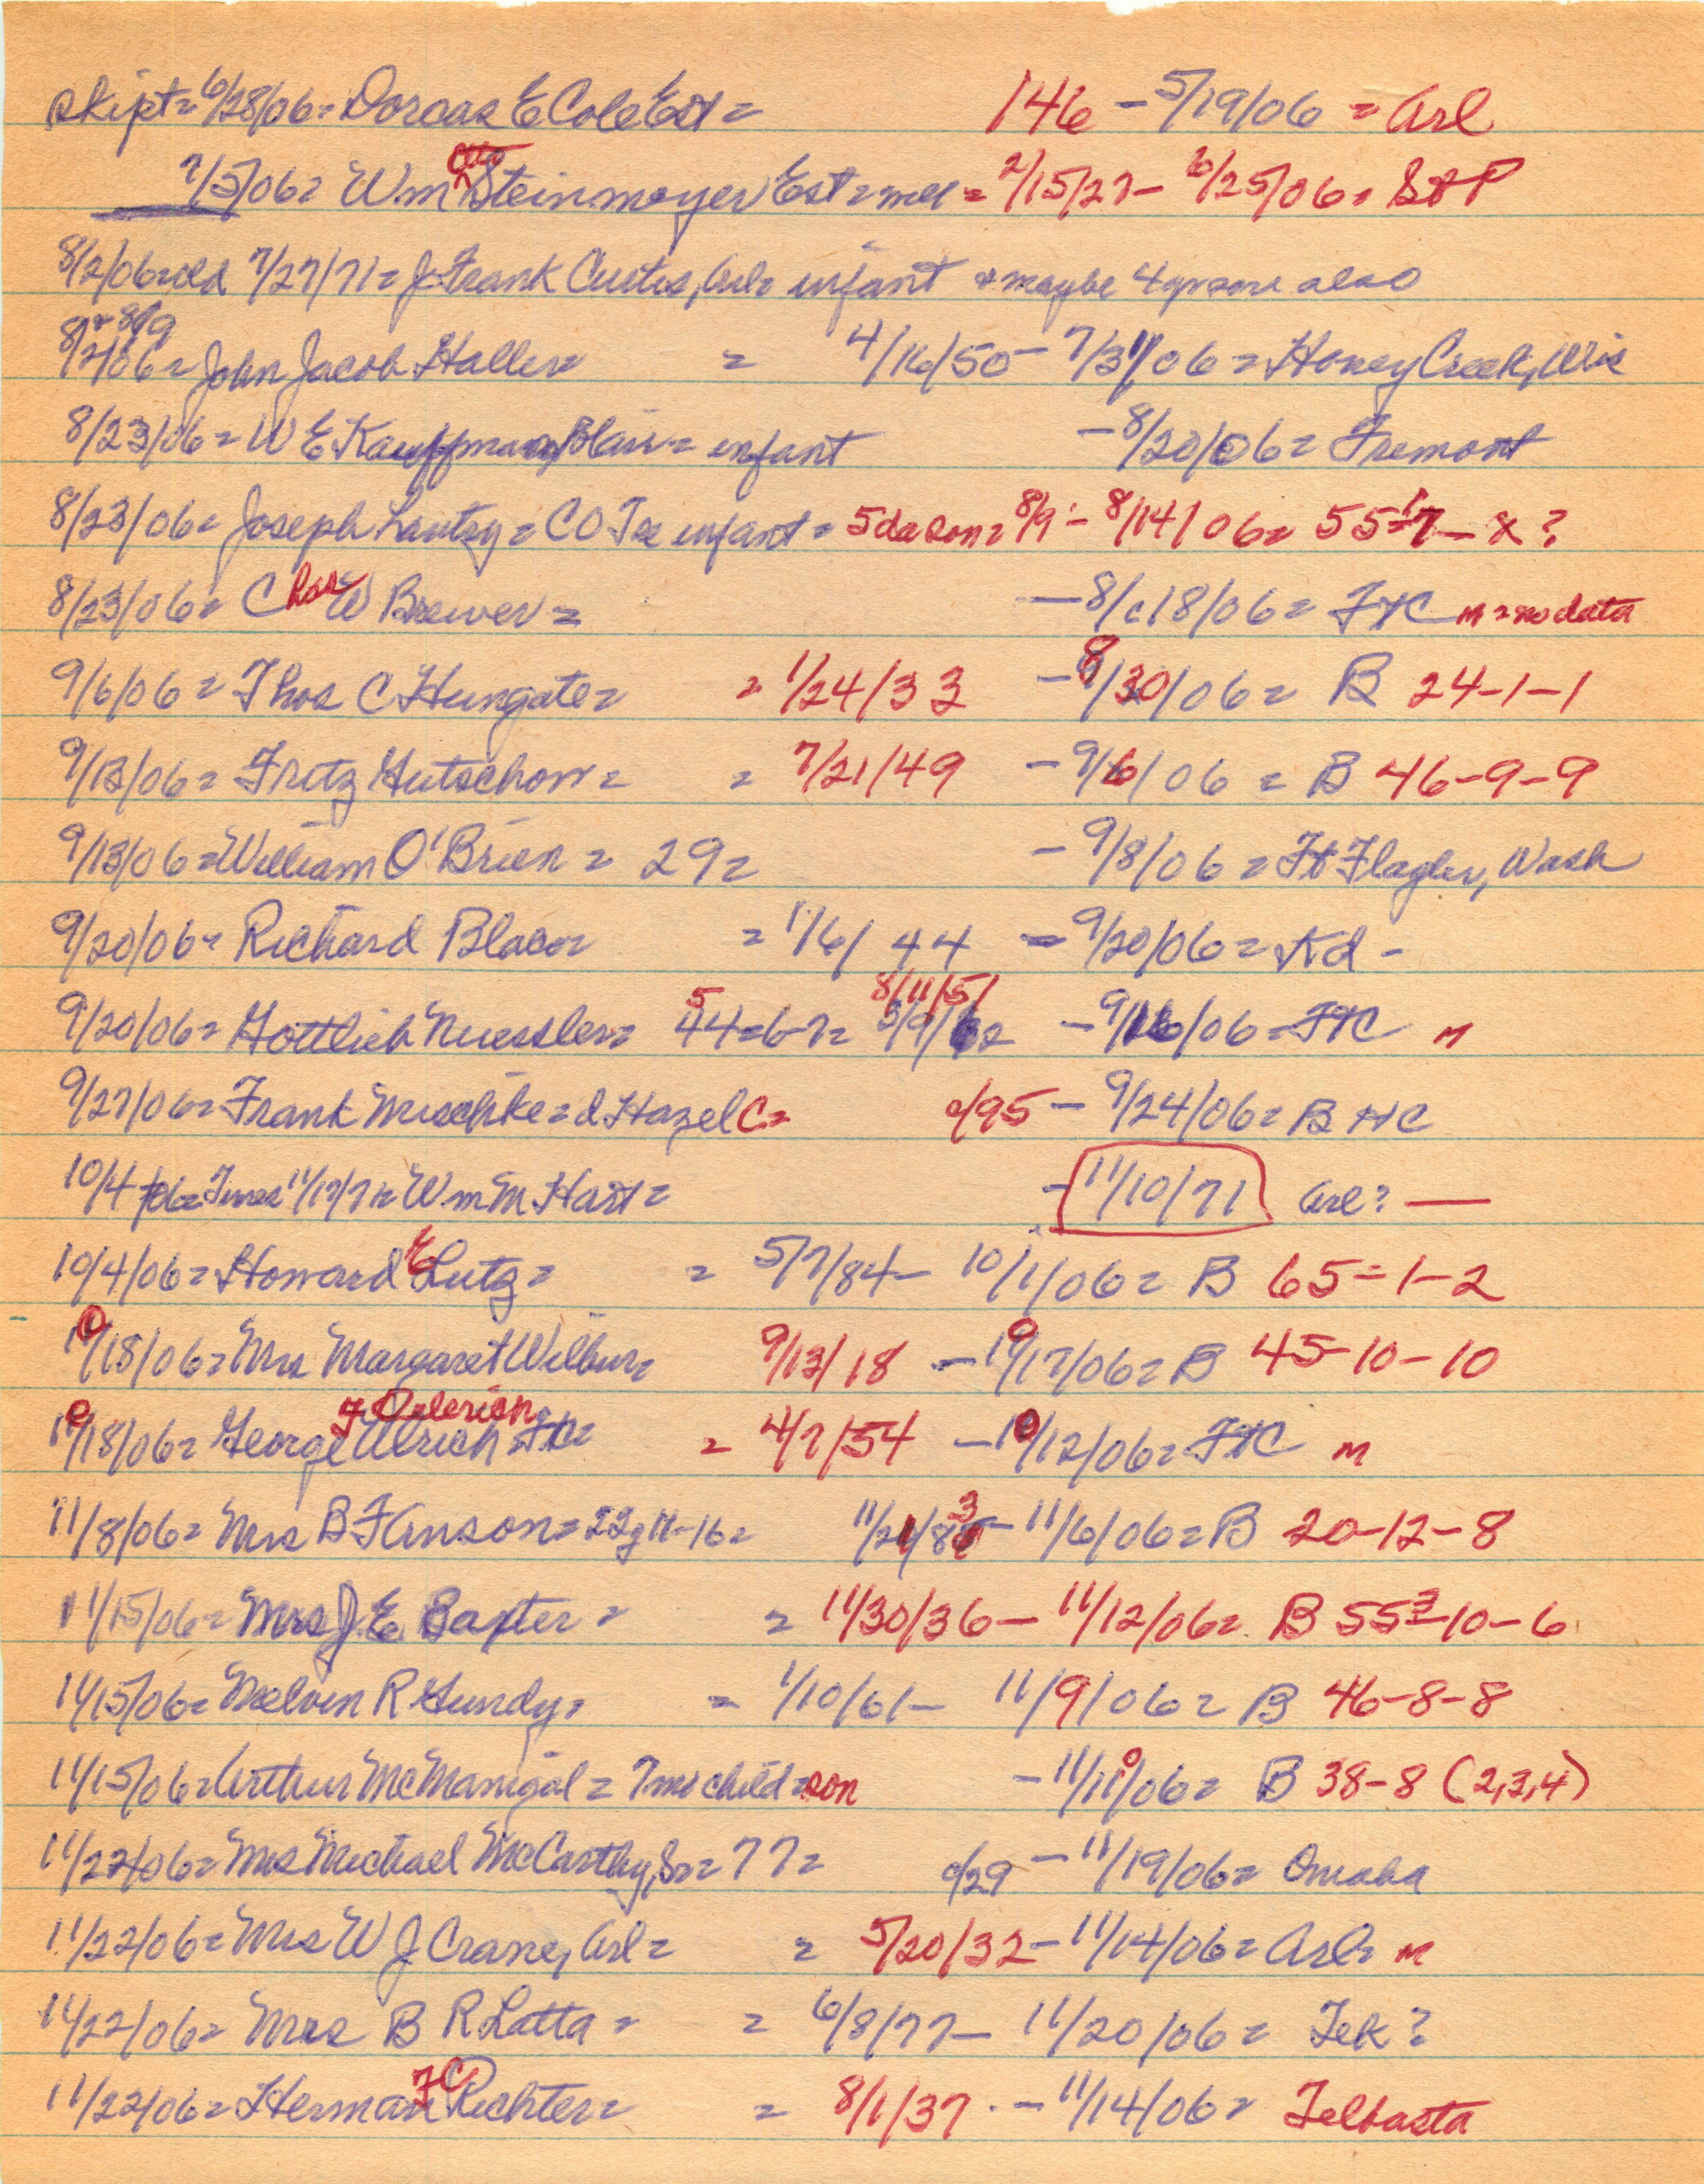 skipt = 6/28/06 = Dorcas E Cole Est = 146 - 5/19/06 = Arl
7/5/06 = Wm Otto Steinmeyer Est = mel = 2/15/27 - 6/25/06 = StP
8/2/06 = old 7/27/71 = J Frank Curtis, Arl = infant + maybe 4 yrs one also
8/2/06 + 8/9 = John Jacob Haller = = 4/16/50 - 7/31/06 = Honey Creek, Wis
8/23/06 = W E Kauffman, Blair = infant - 8/20/06 = Fremont
8/23/06 = Joseph Lantzy = CO Tse infant = 5 da son = 8/9 - 8/14/06 = 55=17 - x ?
8/23/06 = Chas W Brewer = - 8/18/06 = FtC m = no data
9/6/06 = Thos C Hungate = = 1/24/33 - 8/30/06 = B 24-1-1
9/13/06 = Fritz Gutschow = = 7/21/49 - 9/6/06 = B 46-9-9
9/13/06 = William O'Brien = 29 = - 9/8/06 = Ft Flagler, Wash
9/20/06 = Richard Blaco = = 1/6/44 - 9/20/06 = Kd -
9/20/06 = Gottlieb Nuessler = 54=6-7= 8/11/51 - 9/16/06 = FtC m
9/27/06 = Frank Mischke = d Hazel C = c/95 - 9/24/06 = B HC
10/4/06 = Times 11/17/71 = Wm M Hart = - 11/10/71 Arl? —
10/4/06 = Howard E Lutz = = 5/7/84 - 10/1/06 = B 65=1-2
10/18/06 = Mrs Margaret Wilbur = 9/13/18 - 10/17/06 = B 45-10-10
10/18/06 = George F Valerian Ulrich = FtC = = 4/7/54 - 10/12/06 = FtC m
11/8/06 = Mrs B F Anson = 22y 11-16 = 11/21/83 - 11/6/06 = B 20-12-8
11/15/06 = Mrs J. E. Baxter = = 11/30/36 - 11/12/06 = B 553-10-6
11/15/06 = Melvin R Gundy = = 1/10/61 - 11/9/06 = B 46-8-8
11/15/06 = Arthur McManigal = 7 mo child = son - 11/10/06 = B 38-8 (2,3,4)
11/22/06 = Mrs Michael McCarthy, Sr = 77 = c/29 - 11/19/06 = Omaha
11/22/06 = Mrs W J Crane, Arl = = 5/20/32 - 11/14/06 = Arl = m
11/22/06 = Mrs B R Latta = = 6/8/77 - 11/20/06 = Tek ?
11/22/06 = Herman F C Richter = = 8/1/37 - 11/14/06 = Telbasta